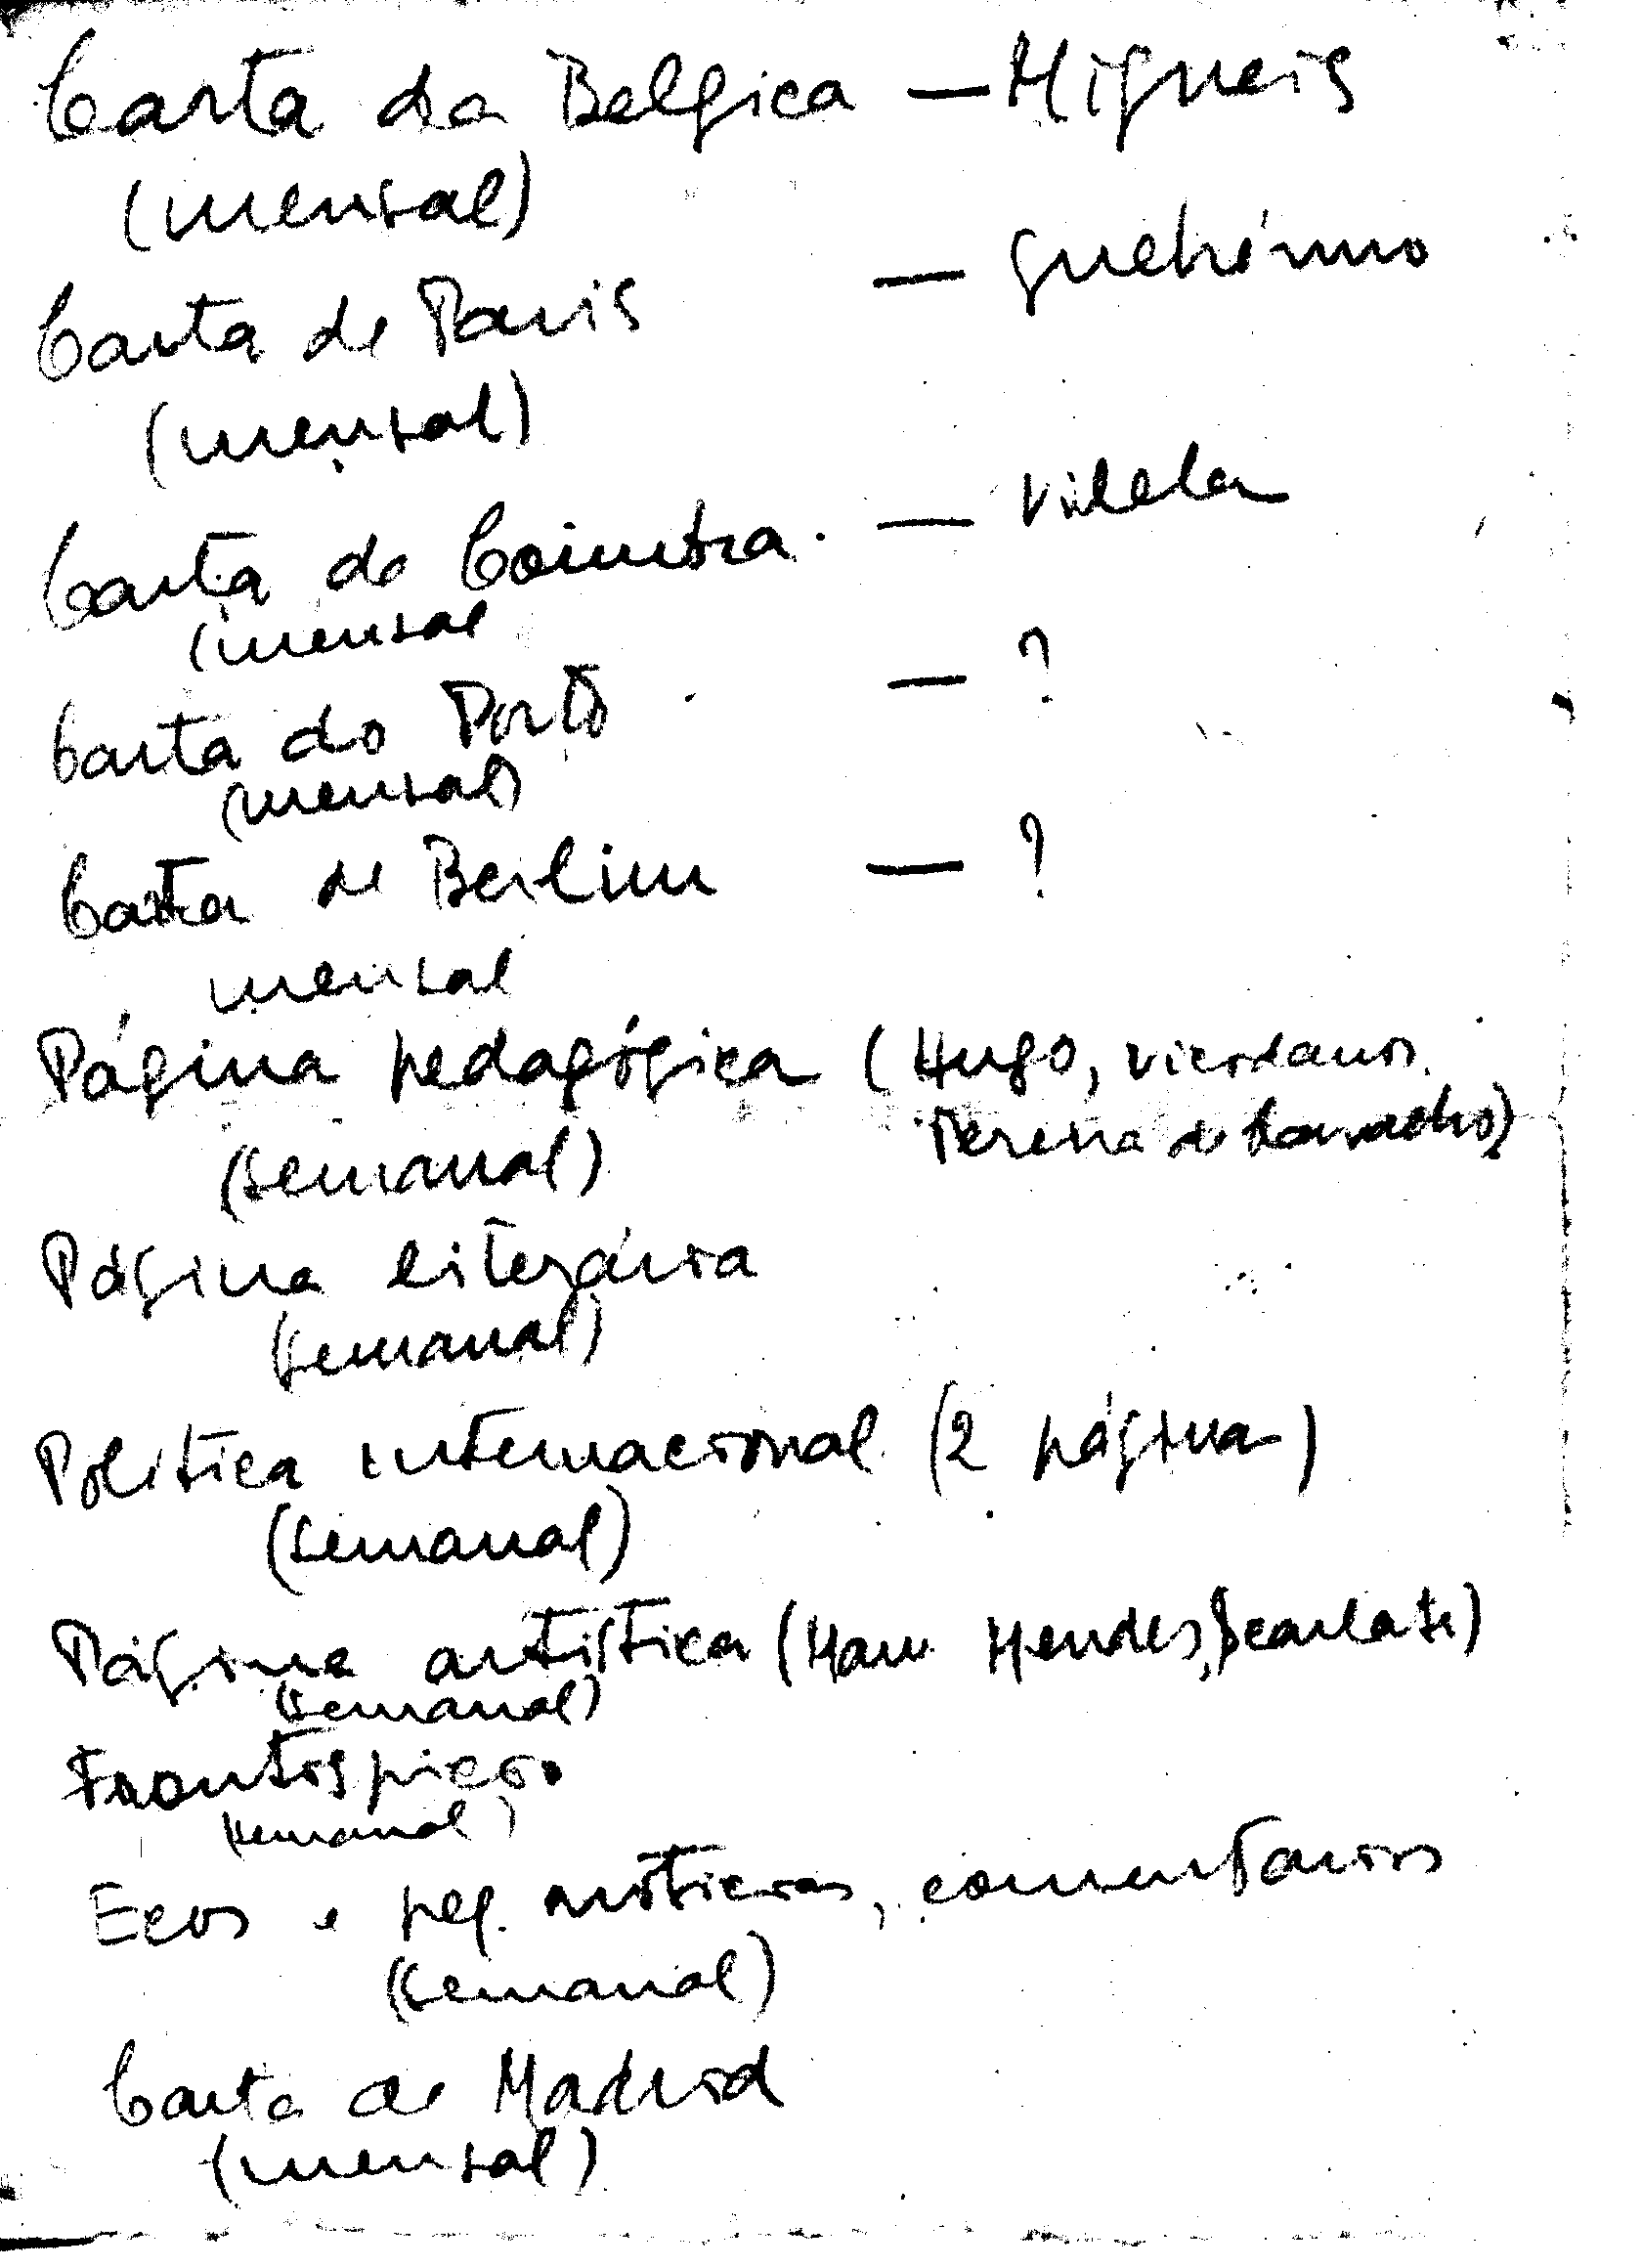 Carta da Belgica — Migueis
(mensal)
Carta de Paris — Guehénno
(mensal)
Carta de Coimbra. — Vilela
(mensal
Carta do Porto — ?
(mensal)
Carta de Berlim — ?
mensal
Página pedagógica (Hugo,
Pereira de
(semanal)
Página literária
(semanal)
Politica internacional (2 página)
(semanal)
Página artística (Man. Mendes, Scarlati)
(semanal)
Frontospicio
(semanal)
Ecos e peq. noticias, comentarios
(semanal)
Carta de Madrid
(mensal)